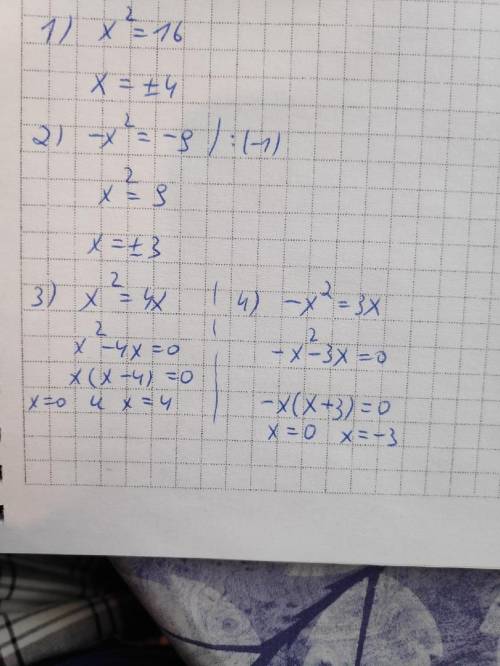 1) x² = 16
x = ±4
2) -x² = -9 / :(-1)
x² = 9
x = ±3
3) x² = 4x
x² - 4x = 0
x(x-4) = 0
x=0 и x=4
4) -x² = 3x
-x² - 3x = 0
-x(x+3) = 0
x=0 x=-3